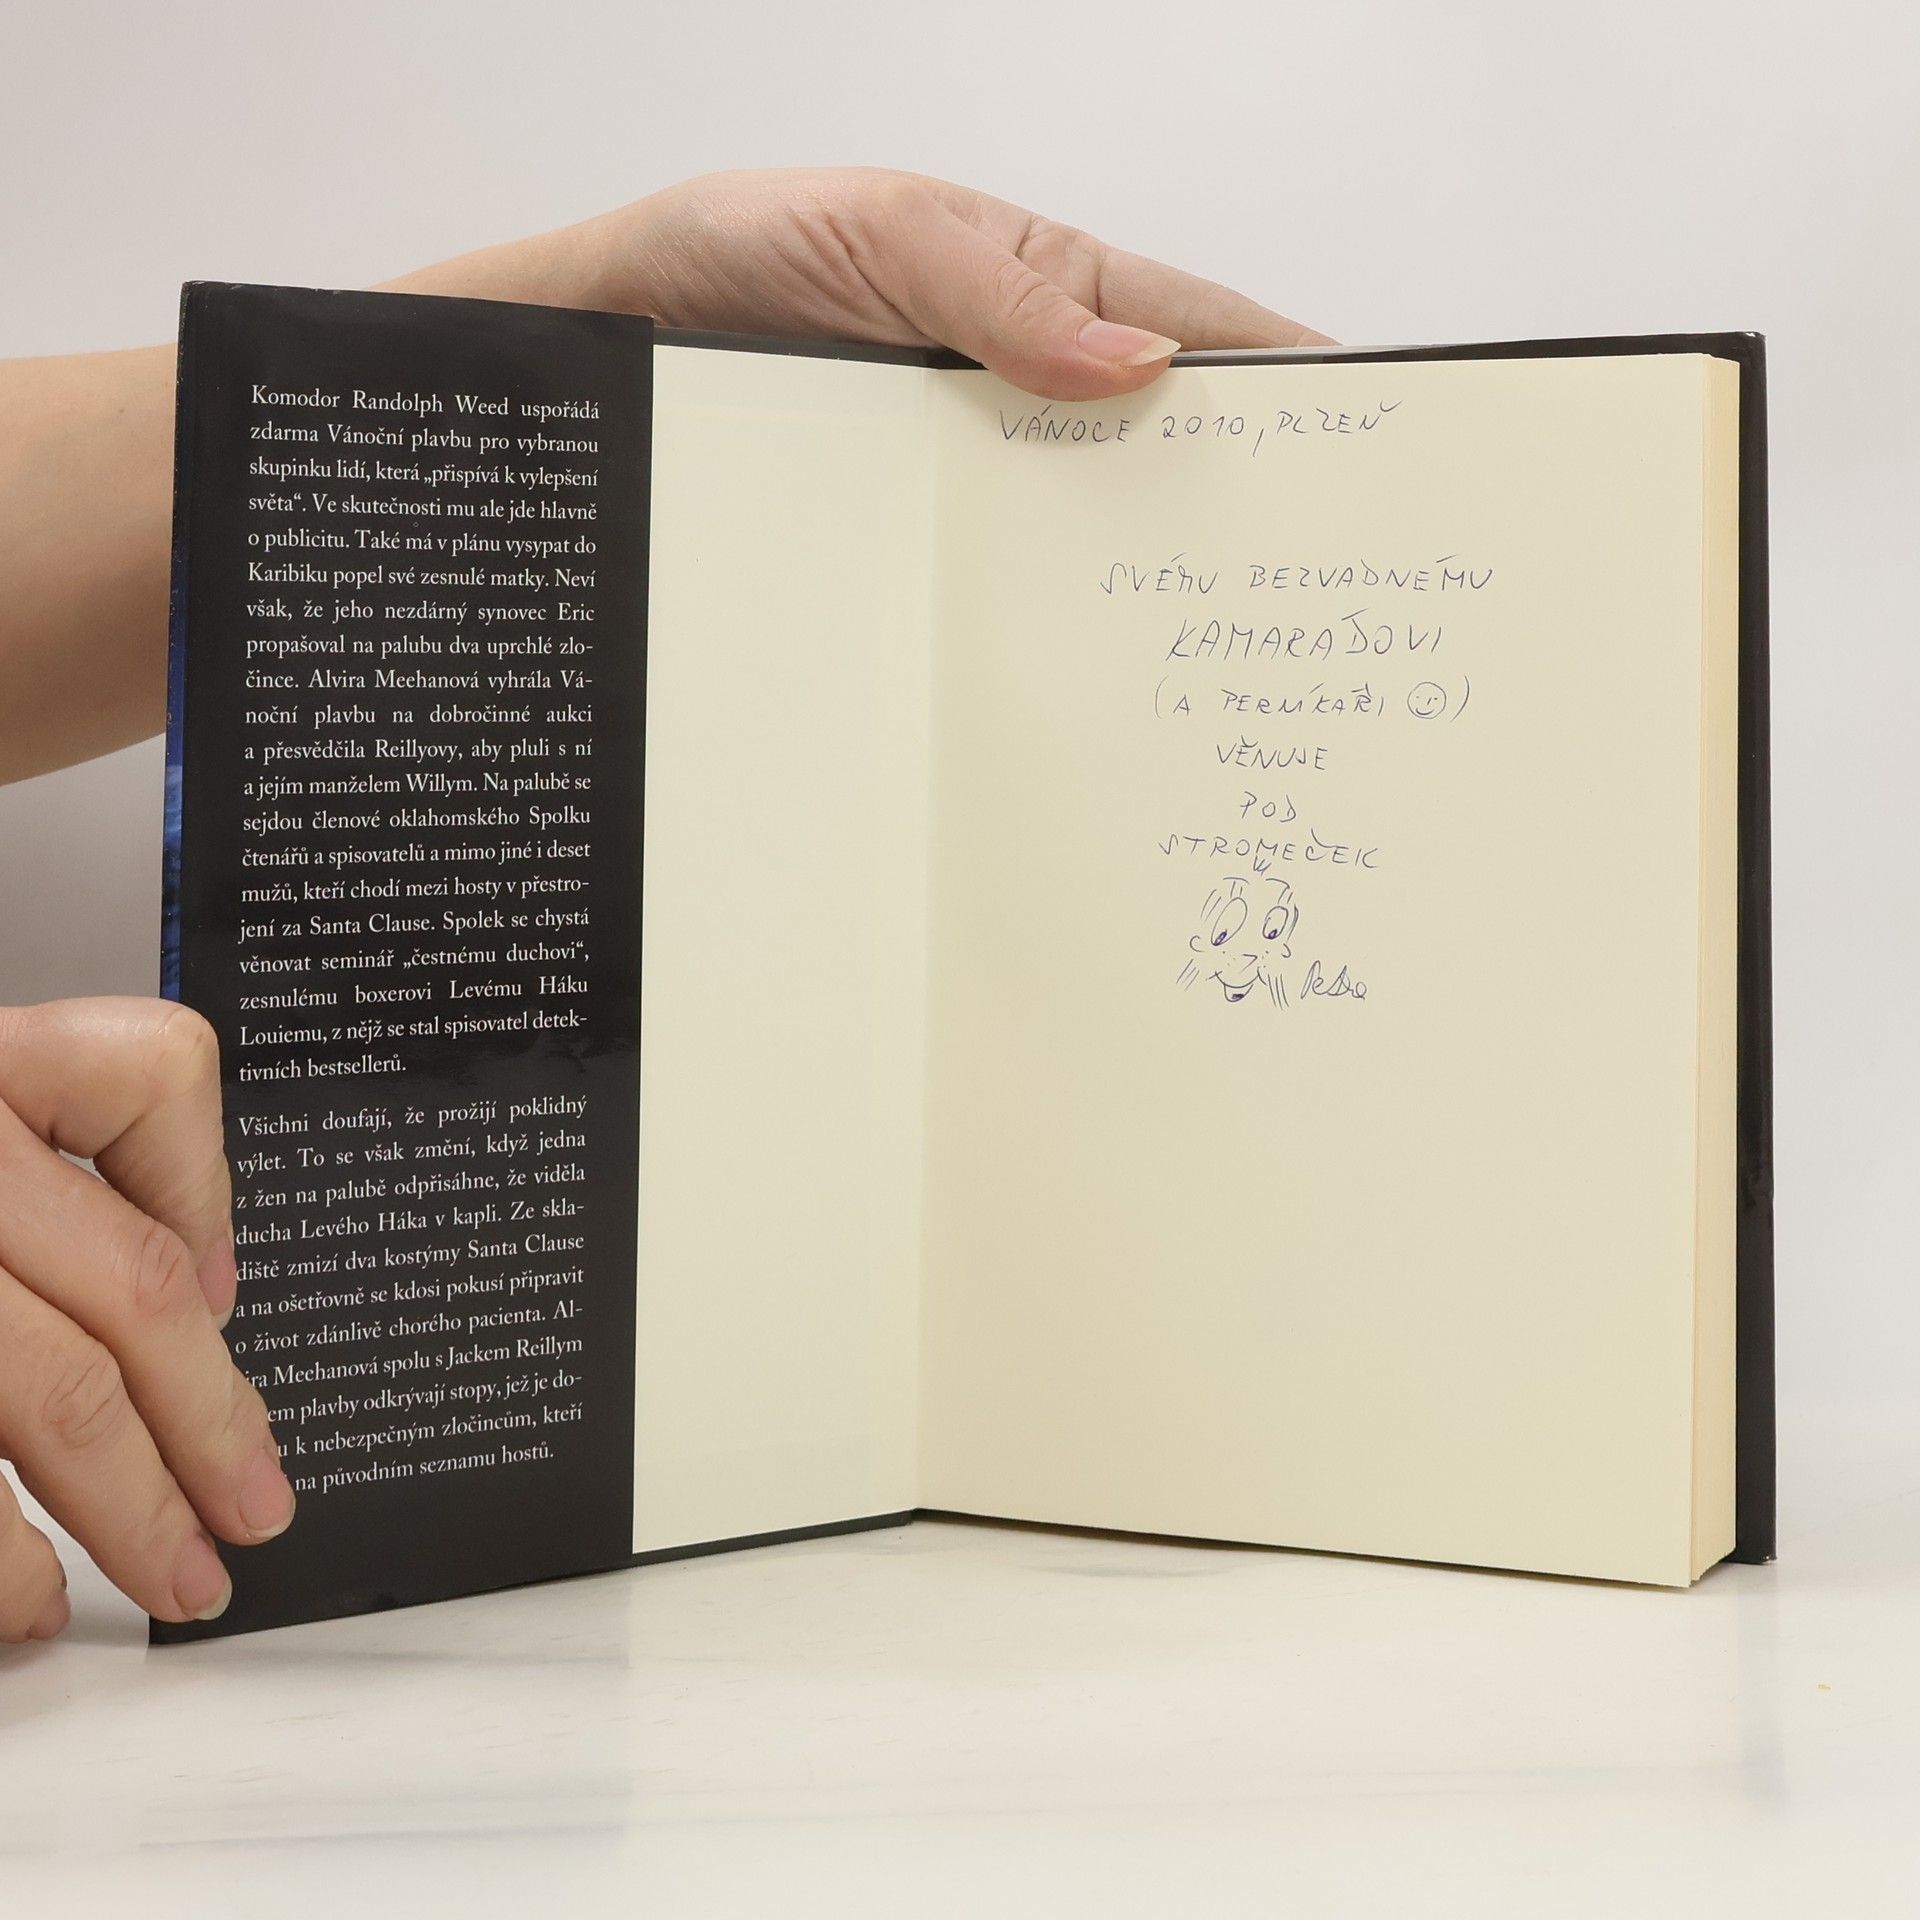 Komodor Randolph Weed uspořádá
zdarma Vánoční plavbu pro vybranou
skupinku lidí, která „přispívá k vylepšení
světa“. Ve skutečnosti mu ale jde hlavně
o publicitu. Také má v plánu vysypat do
Karibiku popel své zesnulé matky. Neví
však, že jeho nezdárný synovec Eric
propašoval na palubu dva uprchlé zlo-
čince. Alvira Meehanová vyhrála Vá-
noční plavbu na dobročinné aukci
a přesvědčila Reillyovy, aby pluli s ní
a jejím manželem Willym. Na palubě se
sejdou členové oklahomského Spolku
čtenářů a spisovatelů a mimo jiné i deset
mužů, kteří chodí mezi hosty v přestro-
jení za Santa Clause. Spolek se chystá
věnovat seminář „čestnému duchovi“,
zesnulému boxerovi Levému Háku
Louiemu, z nějž se stal spisovatel detek-
tivních bestsellerů.
Všichni doufají, že prožijí poklidný
výlet. To se však změní, když jedna
z žen na palubě odpřisáhne, že viděla
ducha Levého Háka v kapli. Ze skla-
diště zmizí dva kostýmy Santa Clause
a na ošetřovně se kdosi pokusí připravit
o život zdánlivě chorého pacienta. Al-
ira Meehanová spolu s Jackem Reillym
em plavby odkrývají stopy, jež je do-
u k nebezpečným zločincům, kteří
na původním seznamu hostů.
VÁNOCE 2010, PLZEŇ
SVÉMU BEZVADNÉMU
KAMARAĎOVI
(A PERNÍKAŘI ☺)
VĚNUJE
POD
STROMEČEK
Petra